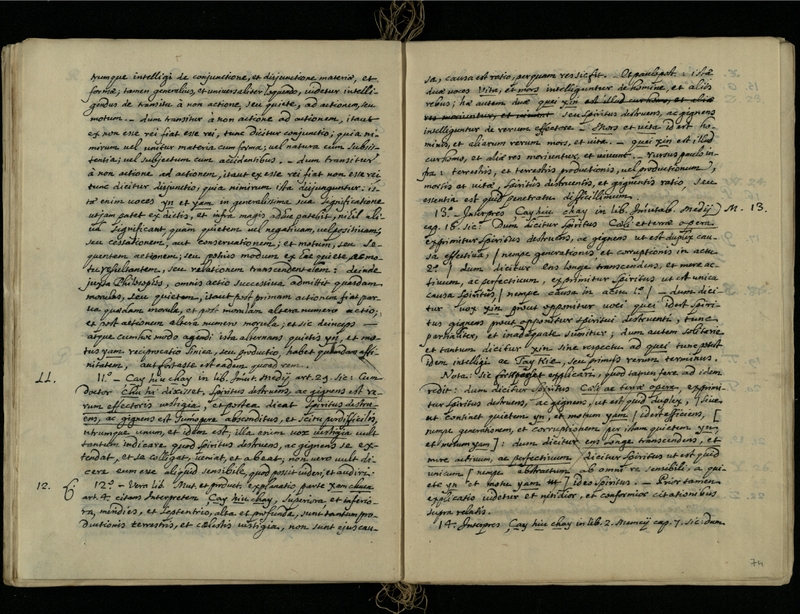 utrumque intelligi de conjunctione, et disjunctione materiæ, et
formæ; tamen generalius, et universaliter loquendo, videtur intelli-
gendus de transitu à non actione, seu quiete, ad actionem, seu
motum. – dum transitur à non actione ad actionem, ita ut
ex non esse rei fiat esse rei, tunc dicitur conjunctio; quia ni-
mirum vel unitur materia cum forma; vel natura cum subsis-
tentia; vel subjectum cum accidentibus. – dum transitur
à non actione ad actionem, ita ut ex esse rei fiat non esse rei
tunc dicitur disjunctio, quia nimirum ista disjunguntur: is-
tæ enim voces yn et yam in generalissima sua significatione
ut jam patet ex dictis, et infra magis adhuc patebit, nihil ali-
ud significant, quàm quietem vel negativam, vel positivam;
seu cessationem, aut conservationem; et motum, seu se-
quentem actionem; seu potius modum ex hac quiete ac mo-
tu resultantem, seu relationem transcendentalem: deinde
juxta Philosophos, omnis actio successiva admittit quasdam
morulas, seu quietem, ita ut post primam actionem fiat par-
va quædam morula, et post morulam altera numero actio;
et post actionem altera numero morula; et sic deinceps –
atque cum hoc modo agendi ista alternans quietis yn, et mo-
tus yam reciprocatio Sinica, seu productio, habet quandam affi-
nitatem, aut fortasse est eadem quoad rem.
11. 11.º – Cay hiu chay in lib. Imut. Medij art. 29. sic: Cum
doctor Chu hi dixisset, Spiritus destruens, ac gignens est re-
rum effectoris vestigia, et postea dicat Spiritus destru-
ens, ac gignens est Summopere absconditus, et scitu perdifficilis,
utrumque unum, et idem est; illa enim vox vestigia vult
tantum indicare quod Spiritus destruens, ac gignens se ex-
tendat, et se colligat, veniat, et abeat, non vero vult di-
cere eum esse aliquid sensibile, quod possit videri, et audiri.
12. 12.º – Vera lib. Mut. et producti explanatio parte
art. 4. citans Interpretem Cay hiu chay, Superiora et inferio-
ra, meridies, et Septentrio, alta et profunda, sunt tantum pro-
ductionis terrestris, et cælestis vestigia, non sunt ejus cau-
sa, causa est ratio, per quam res sic fit. – Et paulo post: istæ
duæ voces vita, et mors intelliguntur de homine, et aliis
rebus; hæ autem duæ quei xin seu Spiritus destruens, ac gignens
intelliguntur de rerum effectore. – Mors et vita id est ho-
minis, et aliarum rerum mors, et vita. – quei xin est, illud
cur homo, et aliæ res moriuntur, et vivunt – rursus paulo in-
fra: terrestris, et terrestris productionis, vel productionum,
mortis et vitæ Spiritûs destruentis, et gignentis ratio, seu
essentia est quid penetratu difficillimum.
13.º – Interpres Cay hiu chay in lib. Immutab. Medij M. 13.
cap. 16. sic: Dum dicitur Spiritus Cæli et terræ opera
exprimitur Spiritus destruens, ac gignens ut est duplex cau-
sa effectiva; [nempe generationis et corruptionis in actu
2.º] dum dicitur ens longe transcendens, et mere ac-
tivum, ac perfectivum, exprimitur Spiritus ut est unica
causa Spiritûs [nempe causa in actu 1.º] – dum dici-
tur vox xin prout opponitur voci quei id est Spiri-
tus gignens prout opponitur Spiritui destruenti; tunc
partialiter, et inadæquate sumitur; dum autem solitarie
et tantum dicitur xin sine respectu ad quei tunc potest
idem intelligi ac Tay Kie, seu primus rerum terminus.
Nota: Sic potest explicari, quod tamen fere ad idem
redit: dum dicitur Spiritus Cæli ac terræ opera, exprimi-
tur Spiritus destruens, ac gignens, ut est quid duplex, [sive
ut continet quietem yn, et motum yam] id est efficiens, [
nempe generationem, et corruptionem per istam quietem yn,
et motum yam]: dum dicitur ens longe transcendens, et
mere activum, ac perfectivum, dicitur Spiritus ut est quid
unicum [nempe abstractum ab omni re sensibili, a qui-
ete yn et motu yam] id est Spiritus. – Prior tamen
explicatio videtur et nitidior, et conformior citationibus
supra relatis.
14. Interpres Cay hiu chay in lib. 2. Memcij cap. 7. sic: dum
74